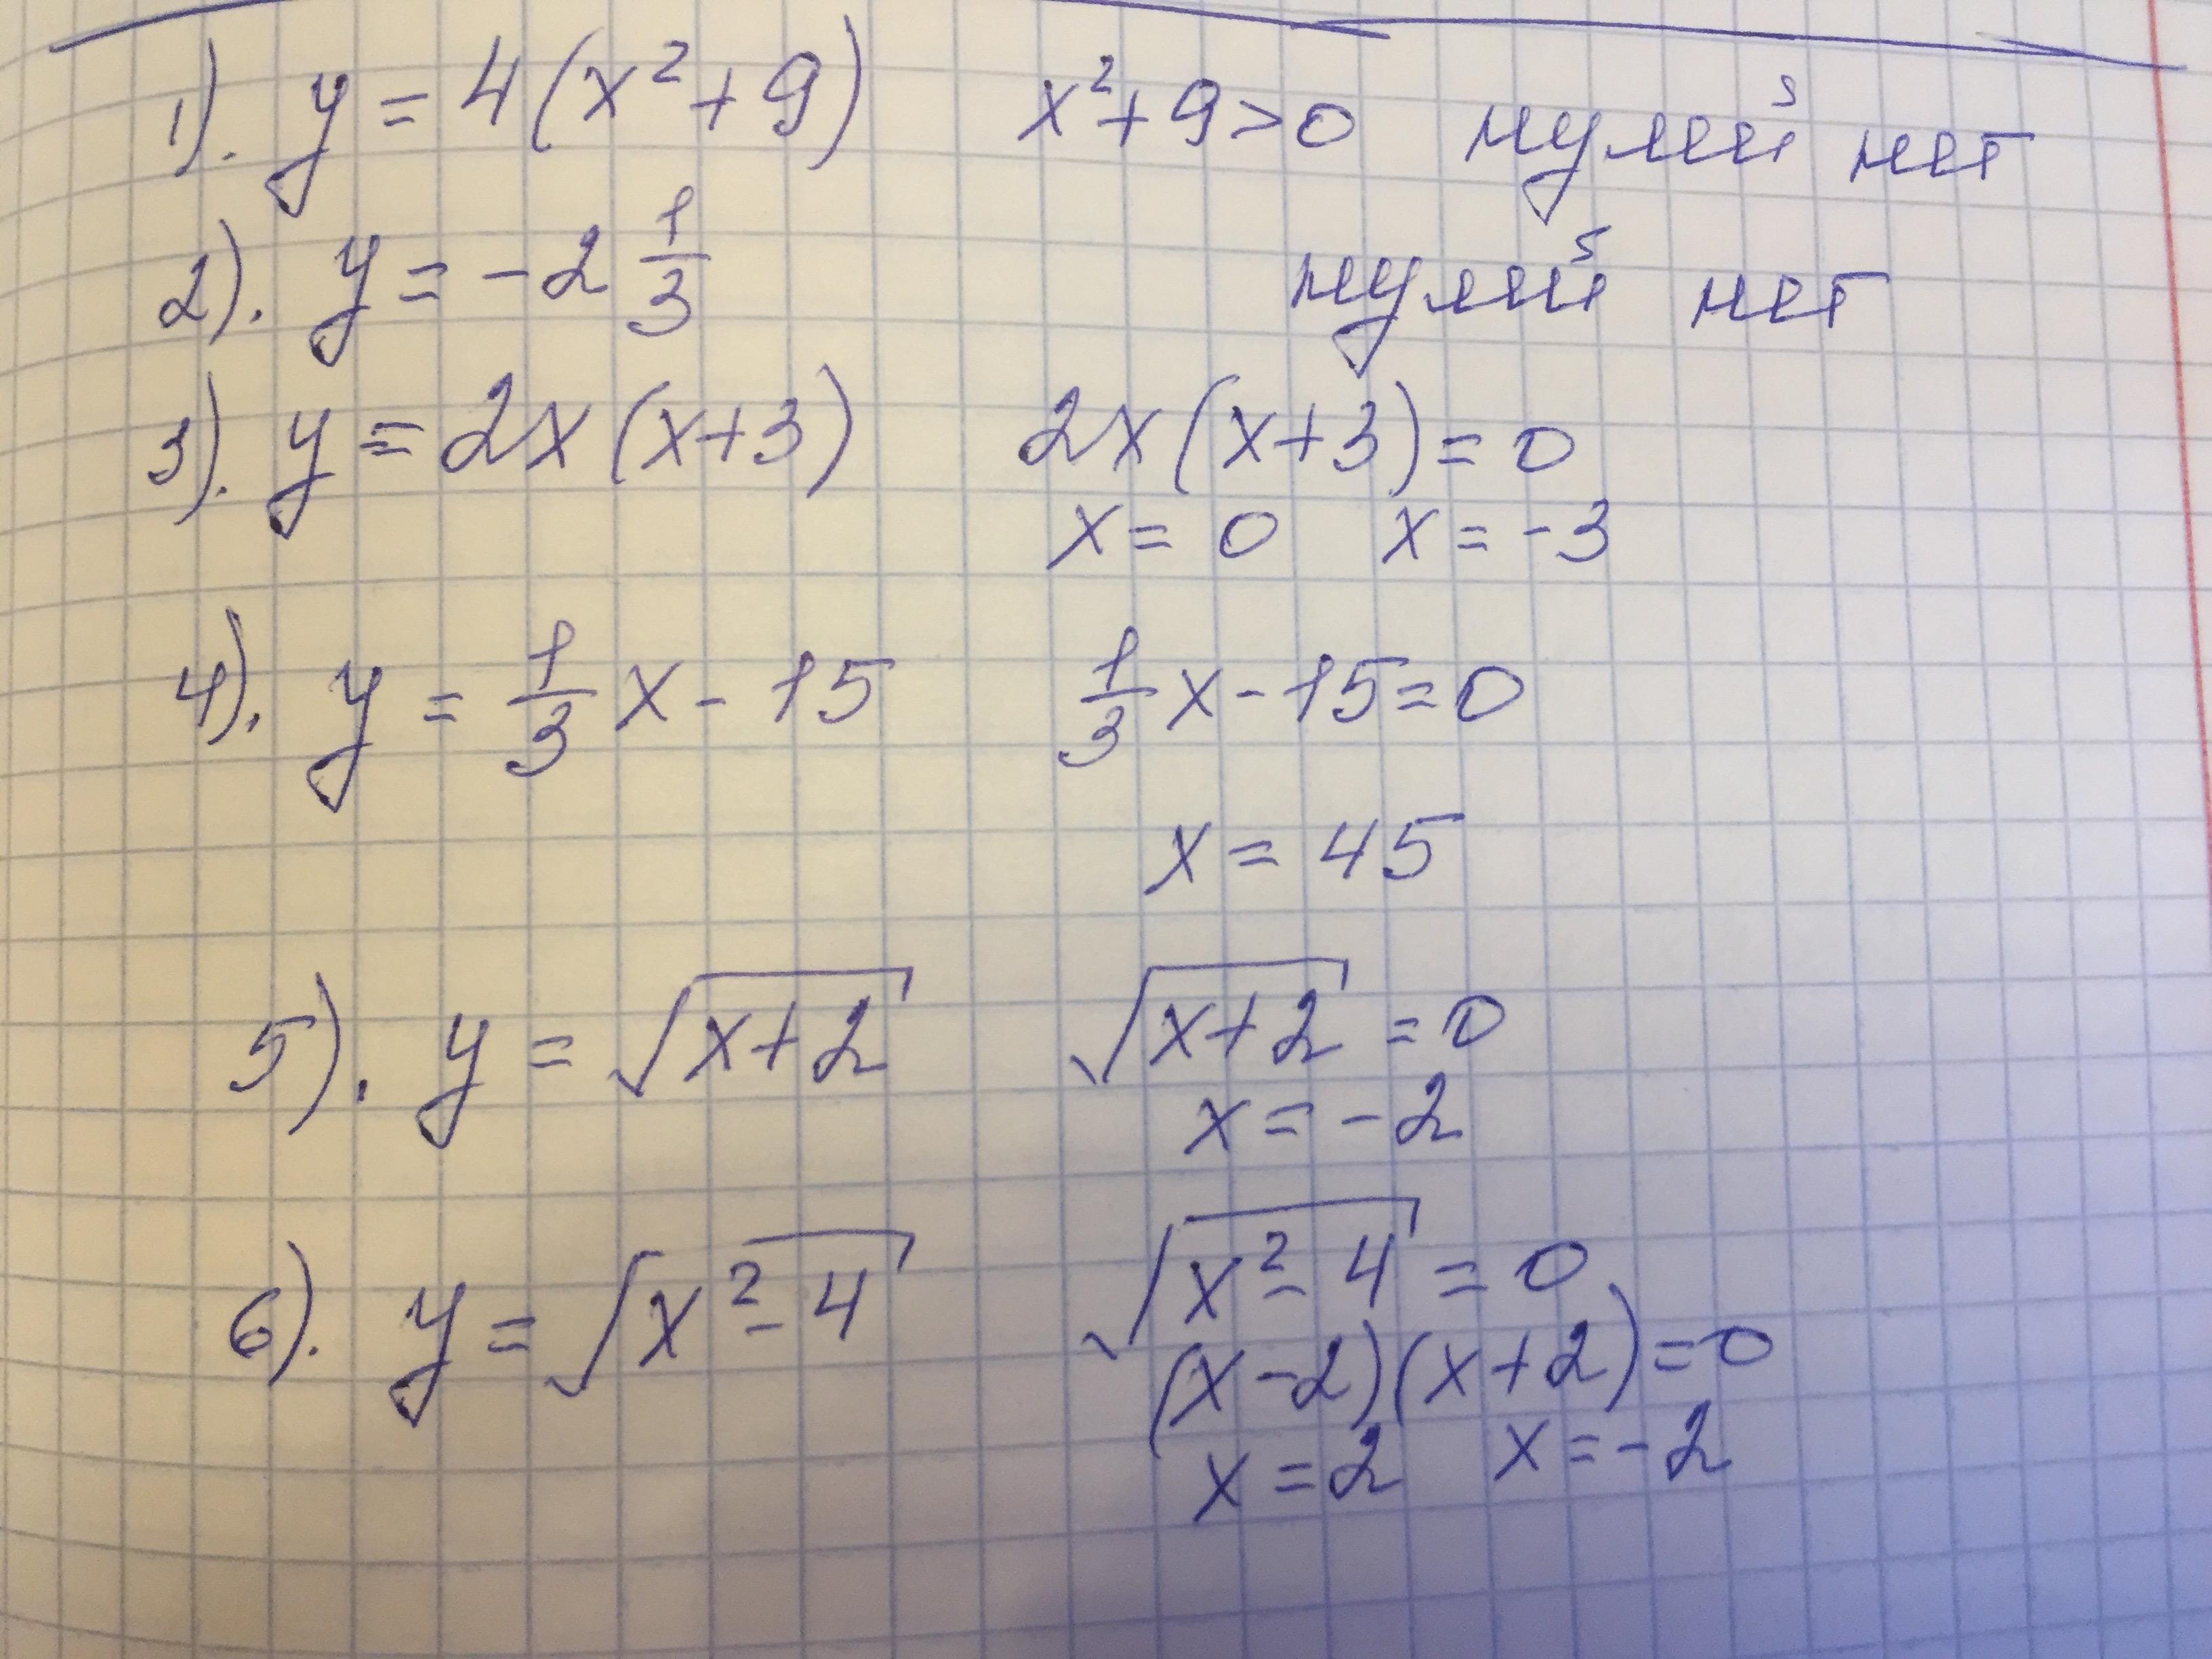 1). y = 4(x² + 9)   x² + 9 > 0   нулей нет
2). y = -2 1/3   нулей нет
3). y = 2x(x+3)   2x(x+3) = 0
x = 0   x = -3
4). y = 1/3 x - 15   1/3 x - 15 = 0
x = 45
5). y = √(x+2)   √(x+2) = 0
x = -2
6). y = √(x² - 4)   √(x² - 4) = 0
(x-2)(x+2) = 0
x = 2   x = -2